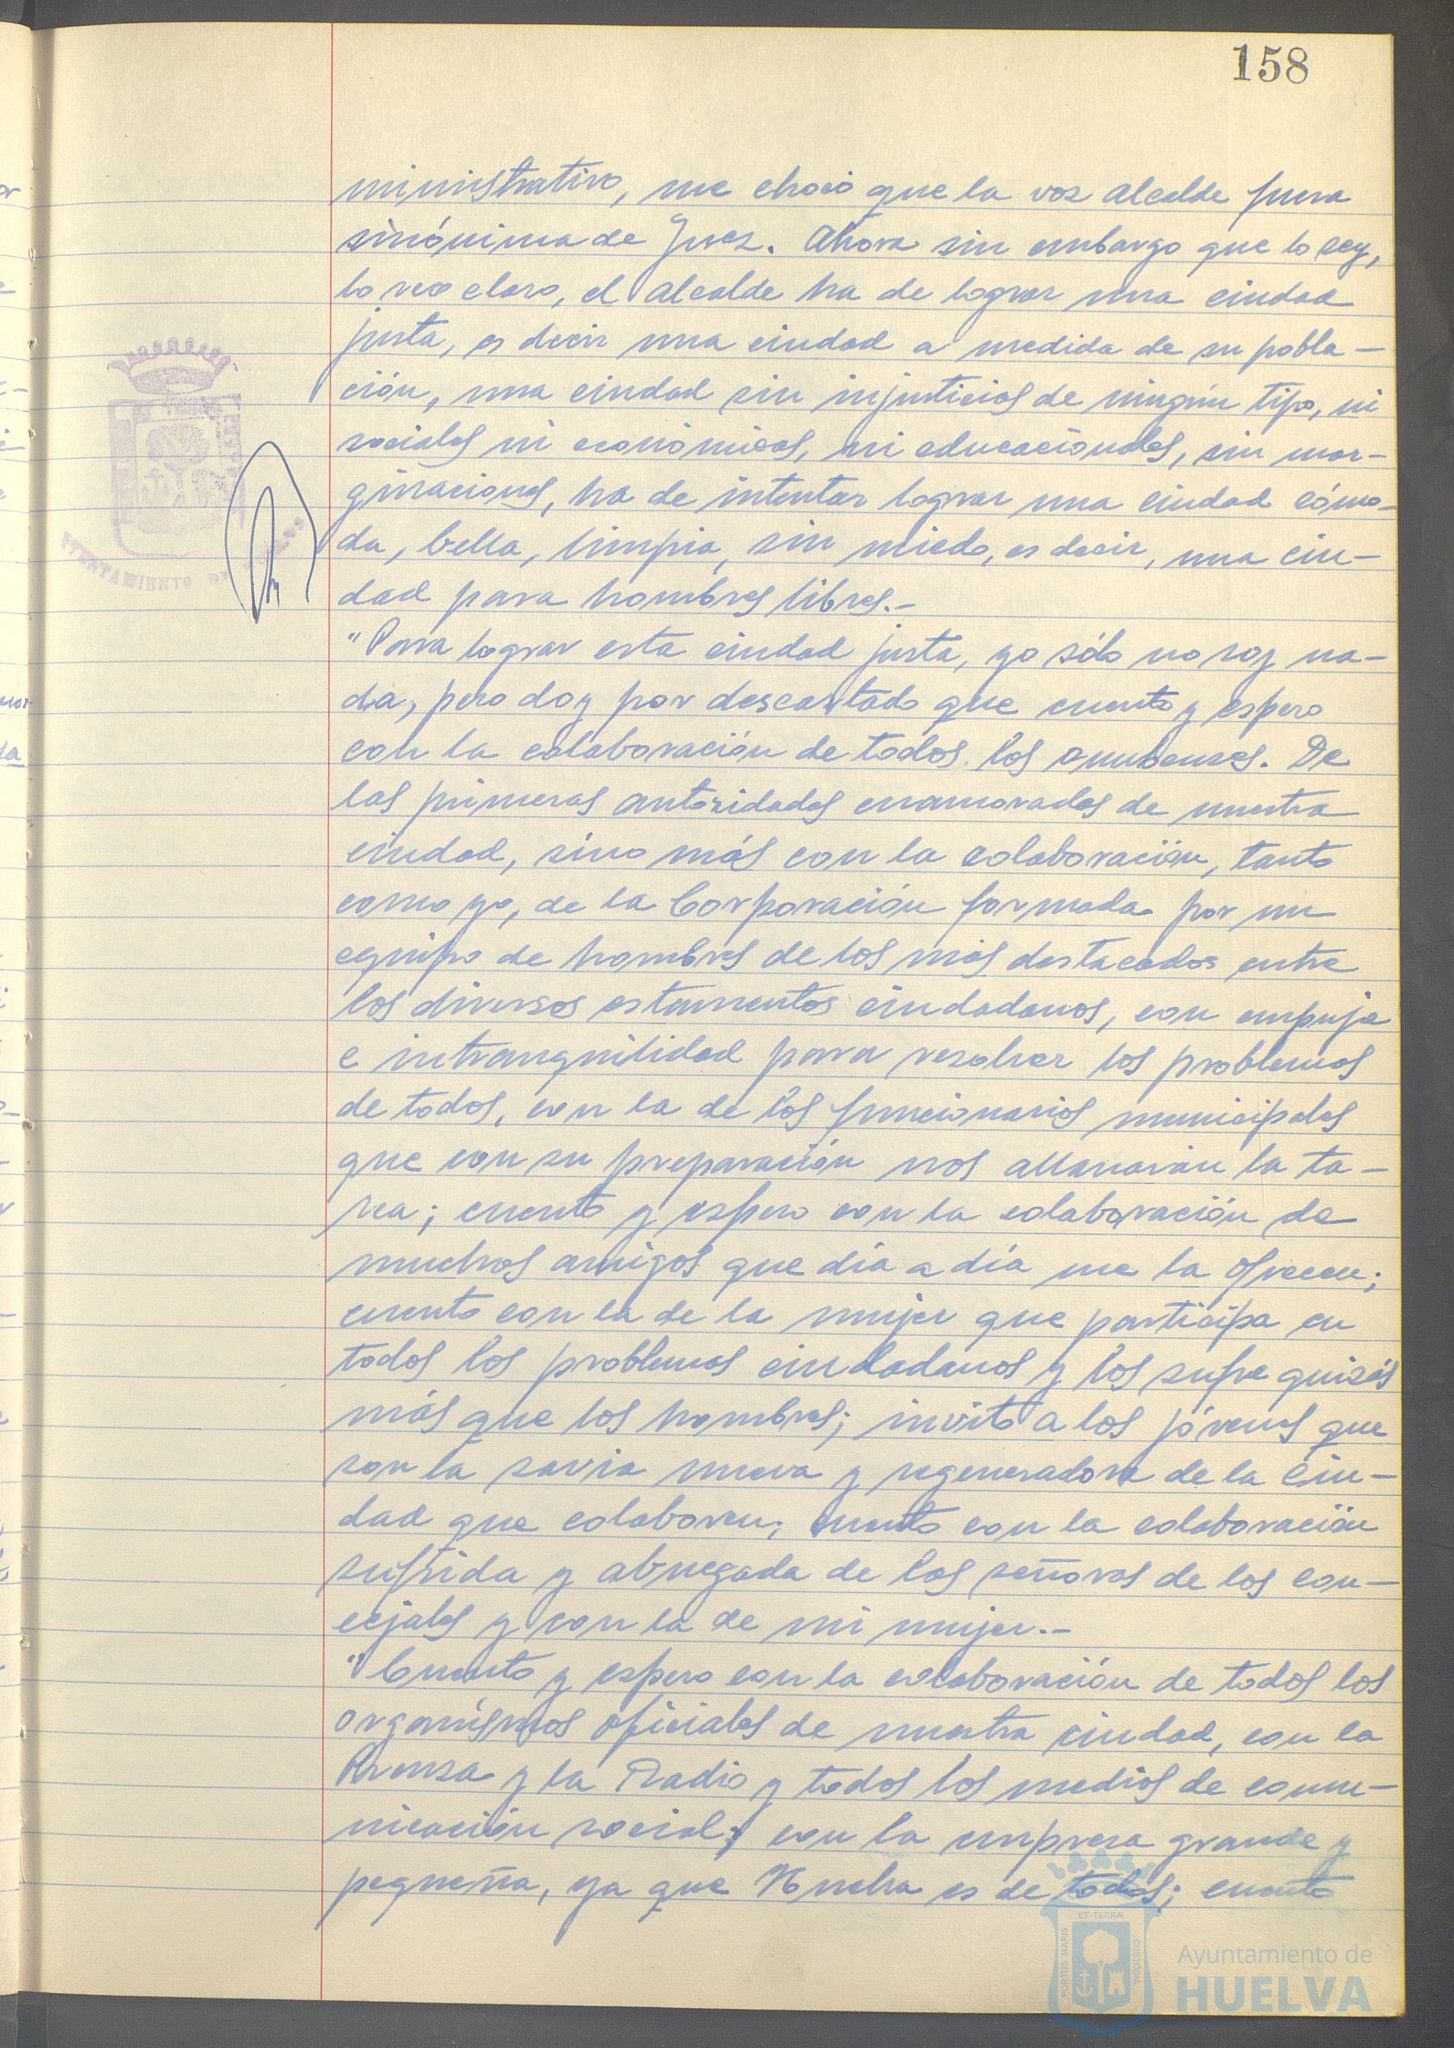 158
ministrativo, me chocó que la voz alcalde fuera
sinónima de Juez. Ahora sin embargo que lo soy,
lo veo claro, el alcalde ha de lograr una ciudad
justa, es decir una ciudad a medida de su pobla-
ción, una ciudad sin injusticias de ningún tipo, ni
sociales ni económicas, ni educacionales, sin mar-
ginaciones, ha de intentar lograr una ciudad cómo-
da, bella, limpia, sin miedo, es decir, una ciu-
dad para hombres libres.-
"Para lograr esta ciudad justa, yo sólo no soy na-
da, pero doy por descartado que cuento y espero
con la colaboración de todos los onubenses. De
las primeras autoridades enamorados de nuestra
ciudad, sino más con la colaboración, tanto
como yo, de la Corporación formada por un
equipo de hombres de los más destacados entre
los diversos estamentos ciudadanos, con empuje
e intranquilidad para resolver los problemas
de todos, con la de los funcionarios municipales
que con su preparación nos allanarán la ta-
rea; cuento y espero con la colaboración de
muchos amigos que día a día me la ofrecen;
cuento con la de la mujer que participa en
todos los problemas ciudadanos y los sufre quizás
más que los hombres; invito a los jóvenes que
son la savia nueva y regeneradora de la Ciu-
dad que colaboren; cuento con la colaboración
sufrida y abnegada de las señoras de los con-
cejales y con la de mi mujer.-
"Cuento y espero con la colaboración de todos los
organismos oficiales de nuestra ciudad, con la
Prensa y la Radio y todos los medios de comu-
nicación social; con la empresa grande y
pequeña, ya que Huelva es de todos; cuento
AYUNTAMIENTO DE
PORTUS MARIS ET TERRAE CUSTODIA
Ayuntamiento de
HUELVA